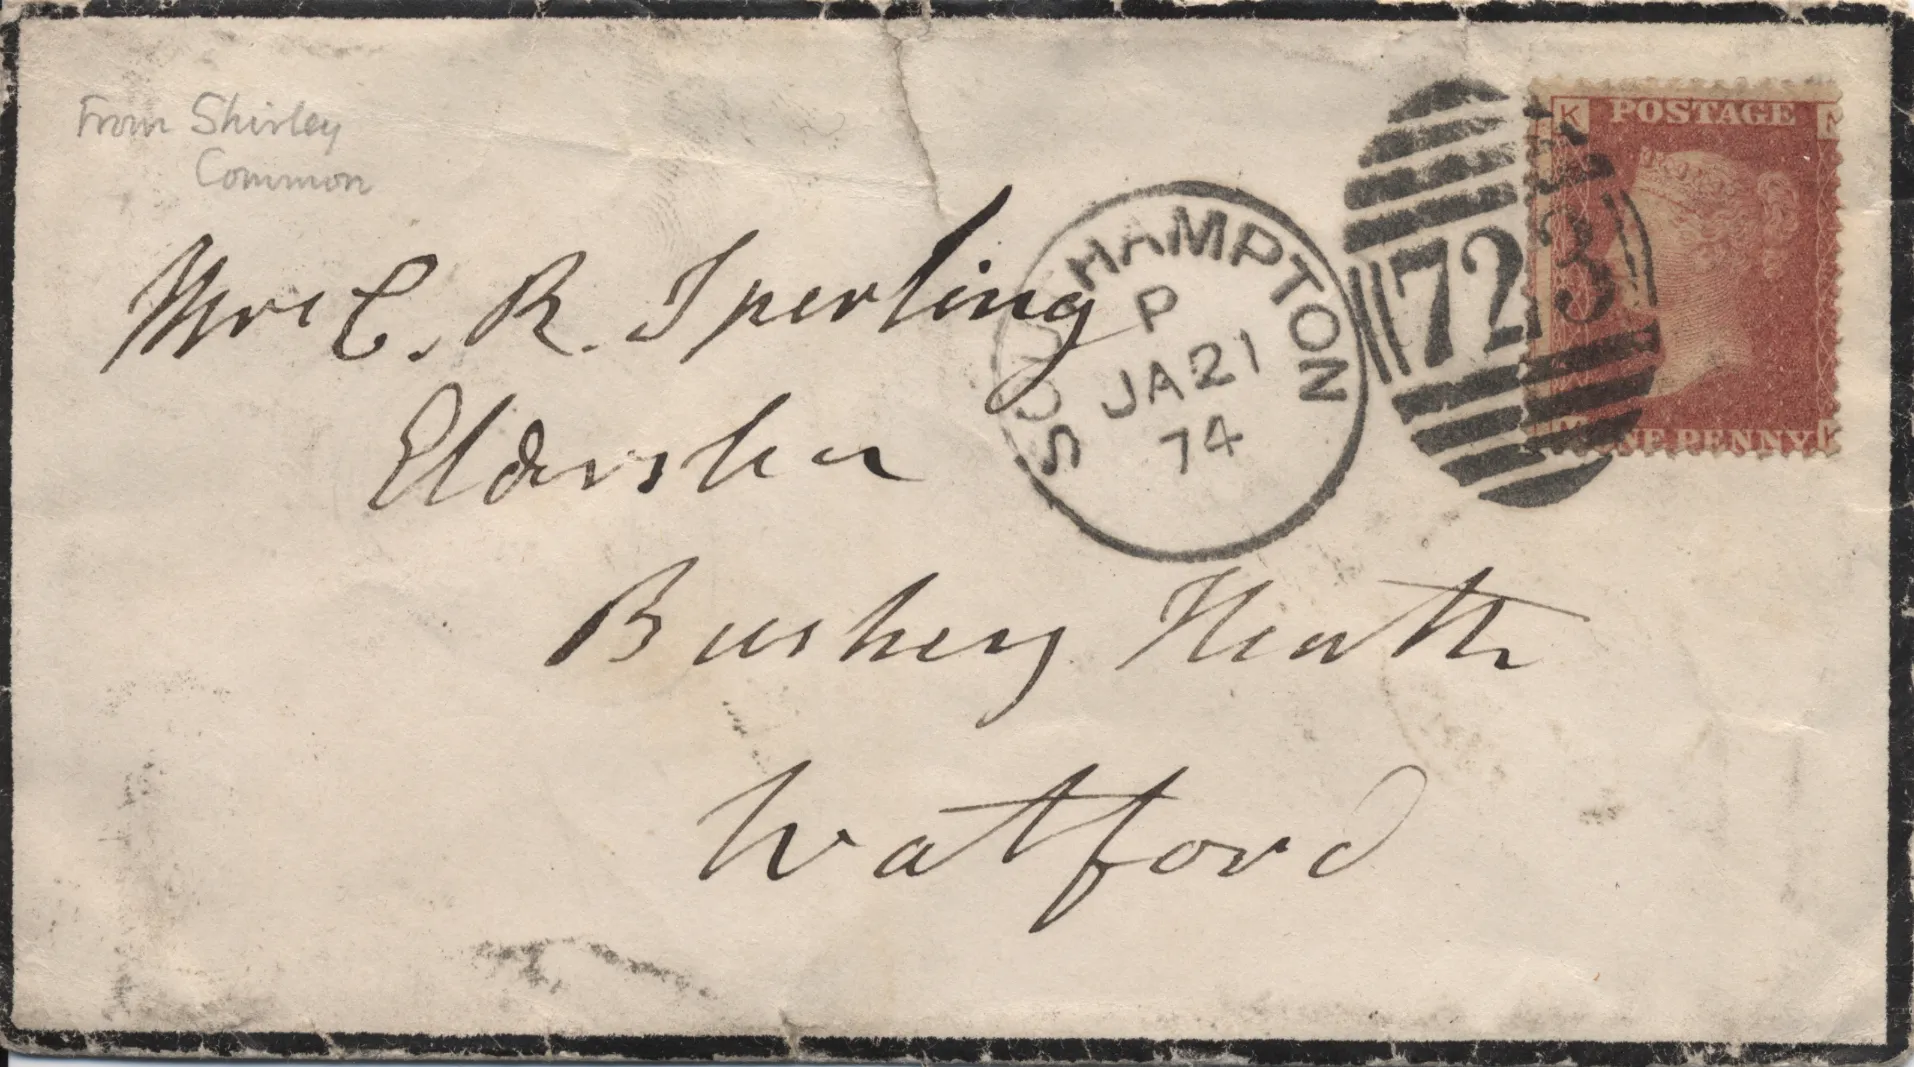 From Shirley
Common
K POSTAGE M
SOUTHAMPTON
P
JA 21
74
723
Mrs C. R. Sperling
Bushey Heath
Watford
M ONE PENNY K